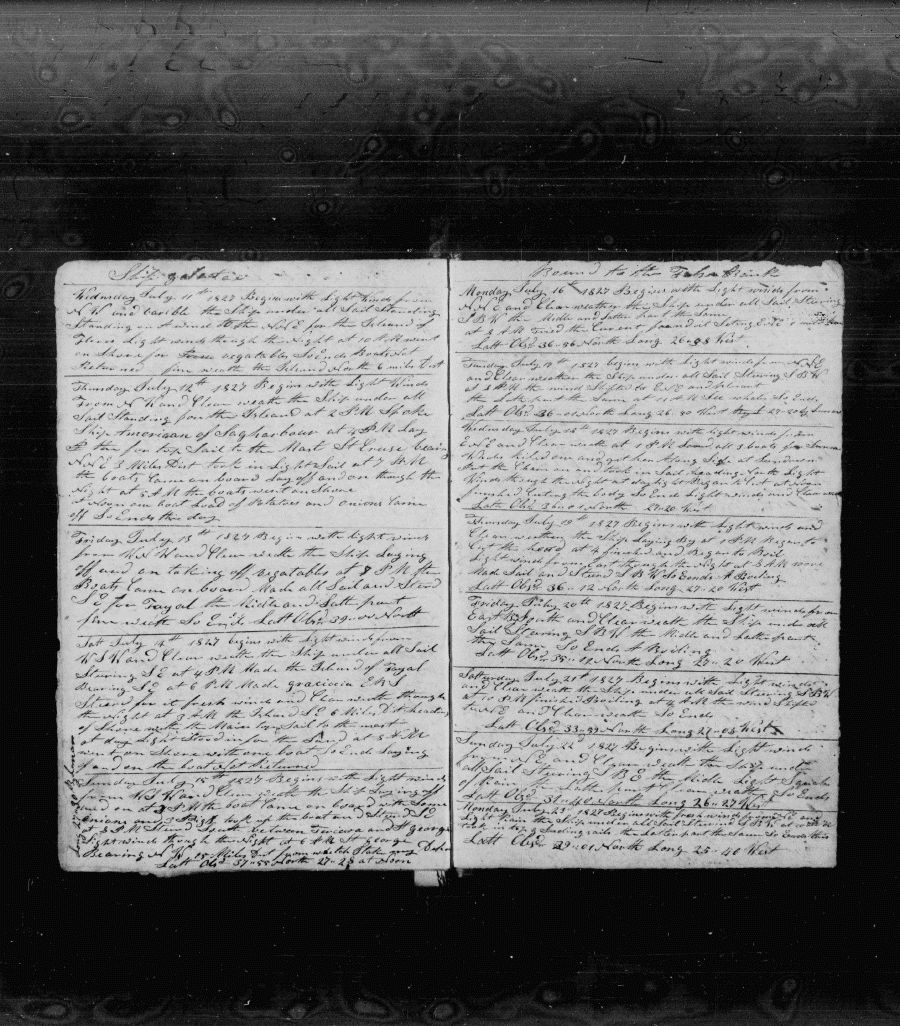 Ship galatea
Wednesday July 11th 1827 Begins with Light Winds from
N W and varible the Ship under all Sail Standing
Standing on a wind to the NNE for the Island of
Flores Light winds though the Night at 10 AM went
on Shore for Some vegatables So Ends Boats Not
Returned fine weath the Island North 6 miles Dist
Thursday July 12th 1827 Begins with Light Winds
From N W and Clear weath the Ship under all
Sail Standing for the Island at 2 PM Spoke
Ship American of Sagharbour at 4 PM Lay
the fore top Sail to the Mast St Cruse bearin
NNE 3 Miles Dist took in Light Sail at 7 PM
the boats Came on board Lay off and on though the
Night at 5 AM the boats went on Shore
at Noon one boat Load of Potatoes and onions Came
off So Ends this day
Friday July 13th 1827 Begin with light winds
from WSW and Clear weath the Ship Laying
off and on taking off vegatables at 8 PM the
Boats Came on board Made all Sail and Steerd
SE for Fayal the Middle and Latter part
fine weath So End Latt Obs 39-00 North
Sat July 14th 1827 begins with Light winds from
WSW and Clear weath the Ship under all Sail
Steering SE at 4 PM Made the Island of Fayal
Bearing SE at 6 PM Made graciocia EBS
Steerd for it fresh winds and Clear weath though
the Night at 2 AM the Island SE 6 Miles Dist heading
of Shore with the Main top Sail to the mast
at day Light Stood in for the Land at 8 AM
went on Shore with one boat So Ends Laying
off and on the boat Not Returned
Sunday July 15th 1827 Begins with Light winds
from WSW and Clear weath the Ship Laying off
and on at 3 PM the boat Came on board with Some
onions and 2 Pigs took up the boat and Steerd SE
at 8 PM Steerd South between Terceira and St george
Light winds though the Night at 6 AM St george
Bearing N W 15 Miles Dist from which I take my Depar
Latt Obs 37-58 North 27-28 at Noon
Bound to the
Monday July 16th 1827 Begins with Light winds from
NNE and Clear weather the Ship under all Sail Steering
SBW the Middle and Latter part the Same
at 8 AM tried the Current found it Seting ESE
Latt Obs 36-56 North Long 26-58 West
Tuesday July 17th 1827 begins with Light winds from NNE
and Clear weather the Ship under all Sail Steering SBW
at 1 AM the wind Shifted to ENE and pleasant
the Latter part the Same at 11 AM See whales So Ends
Latt Obs 36-01 North Long 26-50 West
Wednesday July 18th 1827 Begins with light winds from
ENE and Clear weath at 1 PM Lowerd
Whales killed one and got him along Side at Sundown
Put the Chain on and took in Sail heading North Light
Winds through the Night at daylight Began to Cut at Noon
finished Cuting the body So Ends Light winds and Clear weath
Latt Obs 36-01 North 27-20 West
Thursday July 19th 1827 Begins with Light winds and
Clear weather the Ship Laying dry at 1 PM Began to
Cut the head at 4 finished and Began to Boil
Light winds from East through the Night at 5 AM wore
Made Sail and Steerd SBW So Ends A Boiling
Latt Obs 36-12 North Long 27-20 West
Friday July 20th 1827 Begins with Light winds from
East B South and Clear weath the Ship under all
Sail Steering SBW the Middle and Latter part
the Same So Ends A Boiling
Latt Obs 35-01 North Long 27-20 West
Saturday July 21st 1827 Begins with Light winds
and Clear weath the Ship under all Sail Steering SBW
at 10 PM finished Boiling at 4 AM the wind Shifted
to NE and Clear weath So Ends
Latt Obs 33-39 North Long 27-05 West
Sunday July 22 1827 Begins with Light winds
from NE and Clear weath the Ship under
all Sail Steering SBE the Middle Light Squals
of Rain Latter part Clear weath So Ends
Latt Obs 31-40 North Long 26-27 West
Monday July 23d 1827 Begins with fresh winds from NE and
Light Rain the Ship under all Sail Steering
took in top g Studing sails the Latter part the Same So Ends this
Latt Obs 29-01 North Long 25-40 West